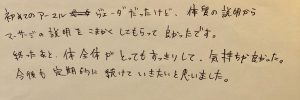 初めてのアーユルヴェーダだったけど、体質の説明から
マッサージの説明をこまかくしてもらって良かったです。
終ったあと、体全体がとってもすっきりして、気持ちが良かった。
今後も定期的に続けていきたいと思いました。